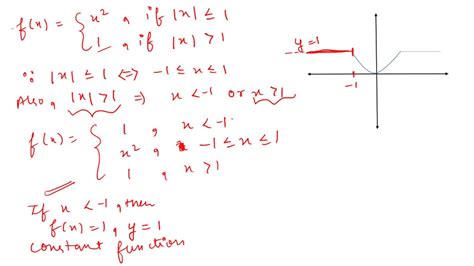 f(x) = { x², if |x| ≤ 1
1, if |x| > 1
∵ |x| ≤ 1 ⇔ -1 ≤ x ≤ 1
Also, |x| > 1 ⇒ x < -1 or x > 1
f(x) = { 1, x < -1
x², -1 ≤ x ≤ 1
1, x > 1
If x < -1, then
f(x) = 1, y = 1
constant function
y = 1
-1